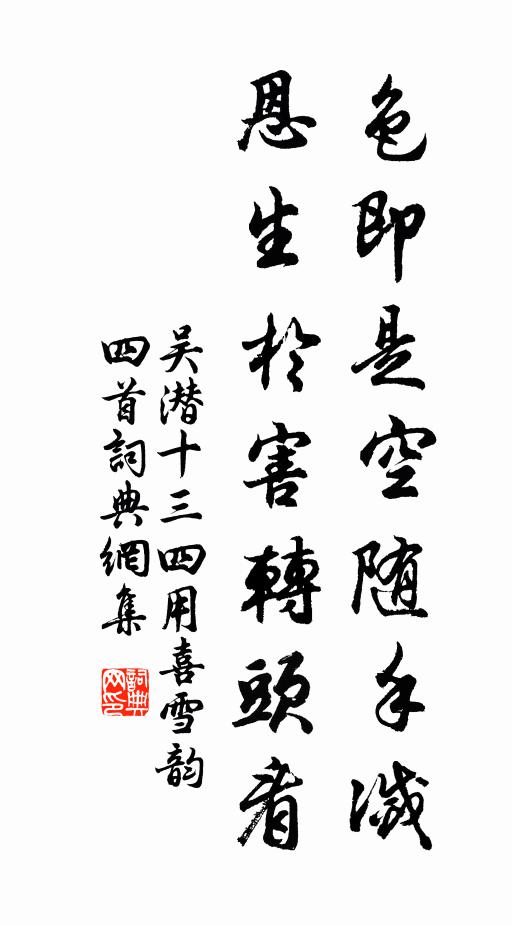 色即是空随手滅
恩生於害轉頭看
吴潜十三四用喜雪韵
四首詞典網集
詞典网印